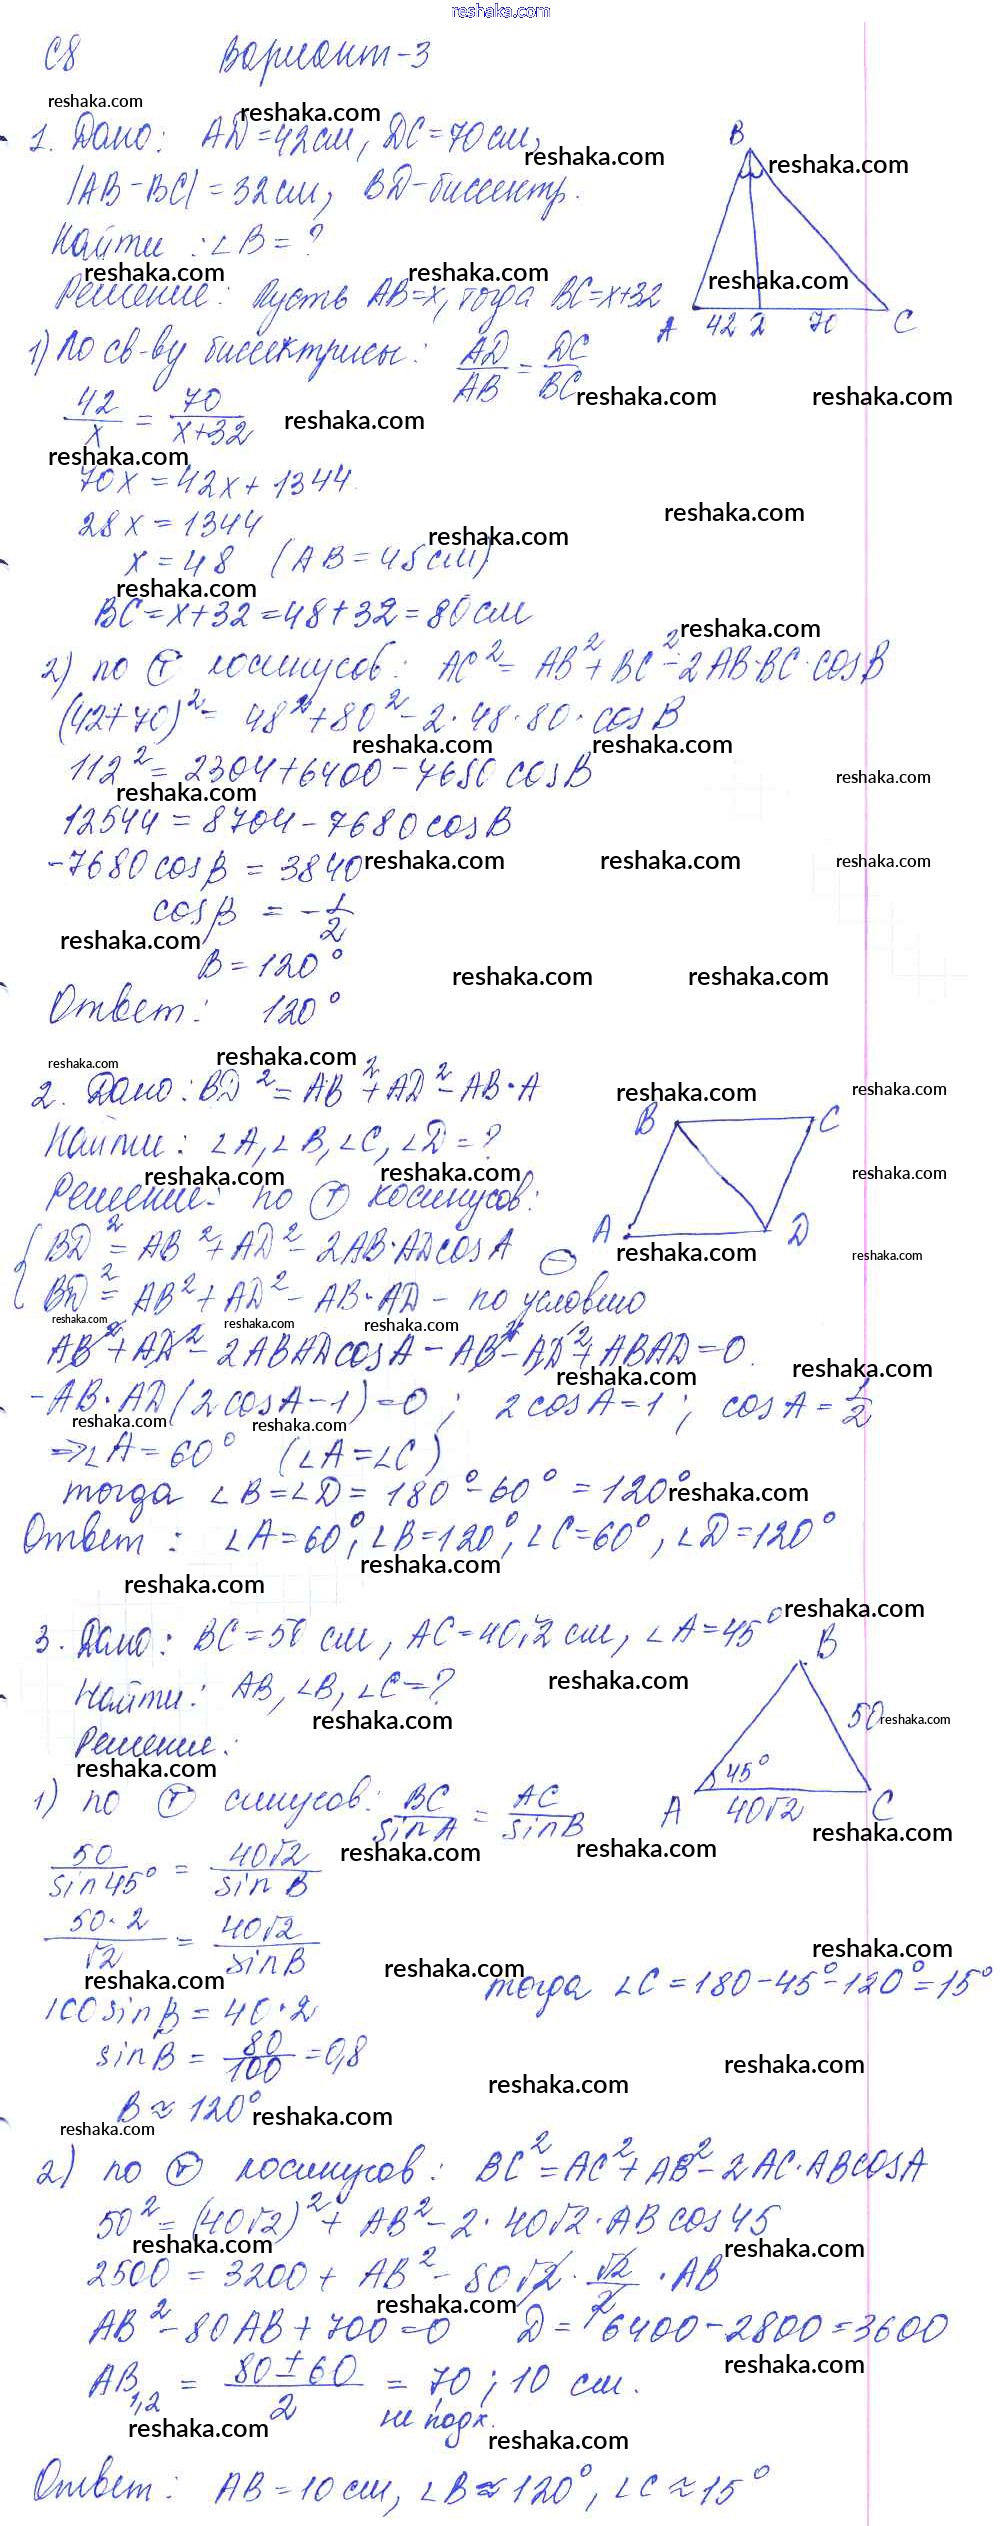 reshaka.com
С8 Вариант-3
1. Дано: AD=42см, DC=70см,
|AB-BC|=32см, BD-биссектр.
Найти: ∠B=?
Решение: Пусть AB=x, тогда BC=x+32
B
A 42 D 70 C
1) По св-ву биссектрисы: AD/AB = DC/BC
42/x = 70/(x+32)
70x=42x+1344
28x=1344
x=48 (AB=48см)
BC=x+32=48+32=80см
2) по Ⓣ косинусов: AC²= AB²+BC²-2AB·BC·cosB
(42+70)²= 48²+80²-2·48·80·cosB
112²=2304+6400-7680cosB
12544=8704-7680cosB
-7680cosB = 3840
cosB = -1/2
B=120°
Ответ: 120°
2. Дано: BD²=AB²+AD²-AB·A
Найти: ∠A, ∠B, ∠C, ∠D=?
B C
A D
Решение: по Ⓣ косинусов:
{ BD²=AB²+AD²-2AB·ADcosA ⊖
BD²=AB²+AD²-AB·AD - по условию
AB²+AD²-2ABADcosA-AB²-AD²+ABAD=0.
-AB·AD(2cosA-1)=0; 2cosA=1; cosA=1/2
⇒∠A=60° (∠A=∠C)
тогда ∠B=∠D= 180°-60° =120°
Ответ: ∠A=60°, ∠B=120°, ∠C=60°, ∠D=120°
3. Дано: BC=50 см, AC=40√2 см, ∠A=45°
Найти: AB, ∠B, ∠C=?
Решение:
B
50
45°
A 40√2 C
1) по Ⓣ синусов: BC/sinA = AC/sinB
50/sin45° = 40√2/sinB
50·2/√2 = 40√2/sinB
100sinB=40·2
тогда ∠C=180-45°-120°=15°
sinB = 80/100 =0,8
B≈120°
2) по Ⓣ косинусов: BC²=AC²+AB²-2AC·ABcosA
50²=(40√2)²+AB²-2·40√2·ABcos45
2500=3200+AB²-80√2·√2/2·AB
AB²-80AB+700=0 D=6400-2800=3600
AB1,2 = (80±60)/2 = 70; 10 см.
не подх.
Ответ: AB=10см, ∠B≈120°, ∠C≈15°